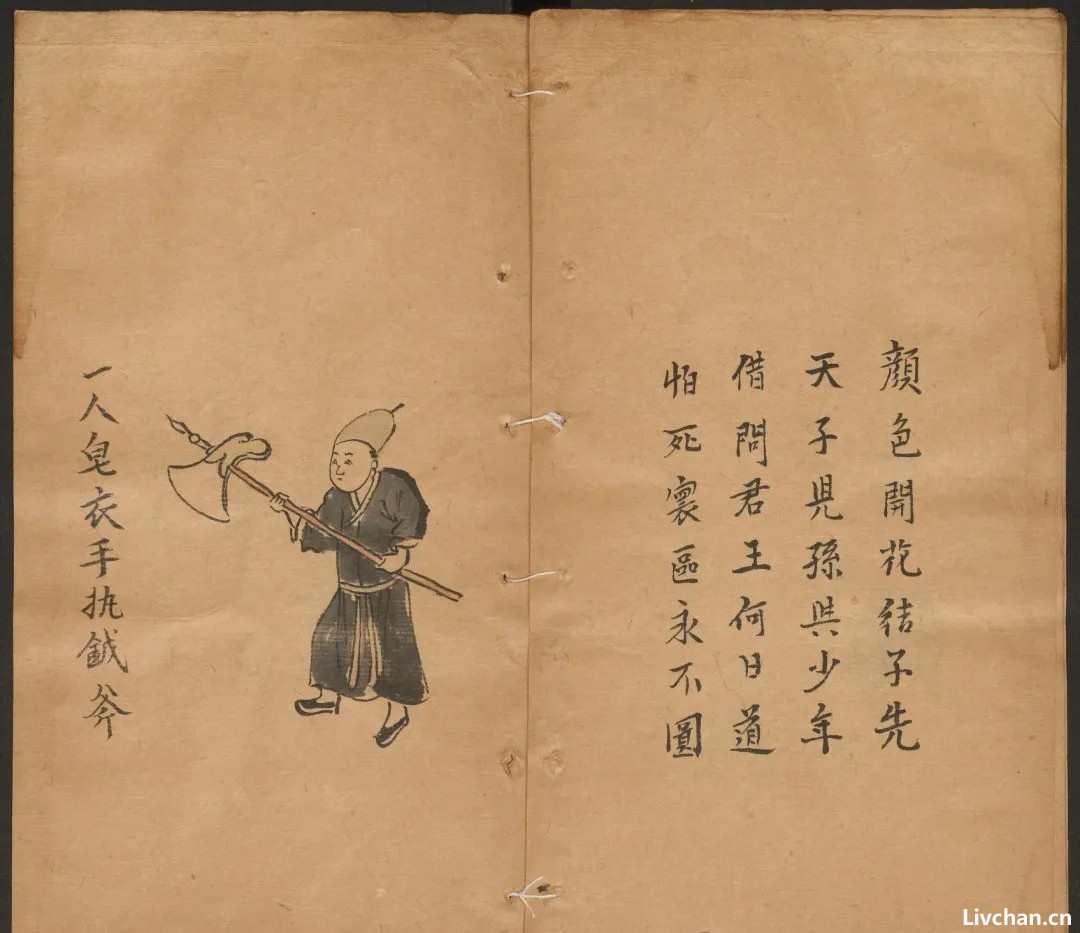 顏色開花結子先
天子見孫與少年
借問君王何日道
怕死寰區永不圓
一人皂衣手执鉞斧
Livchan.cn